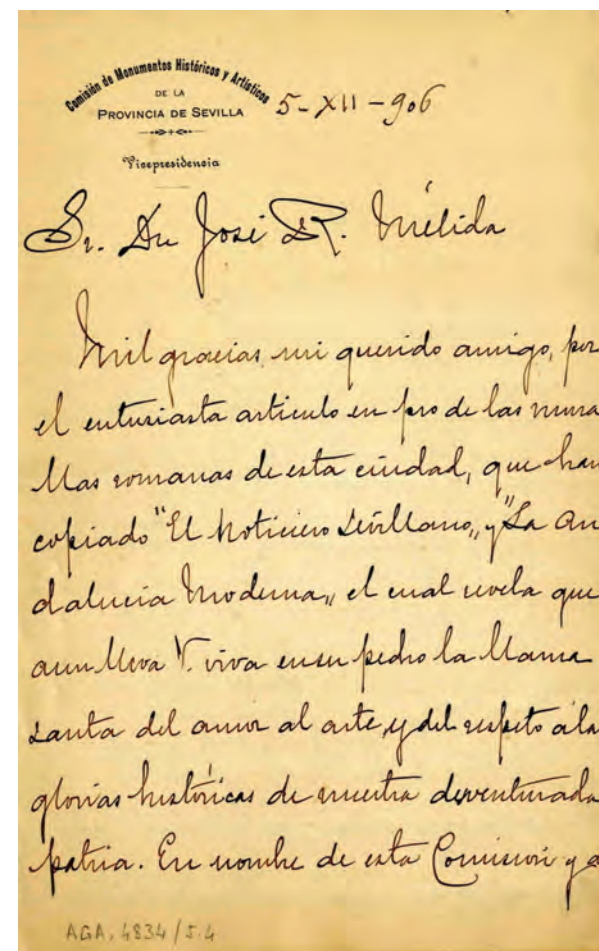 Comisión de Monumentos Históricos y Artísticos
DE LA
PROVINCIA DE SEVILLA
Vicepresidencia
5-XII-906
Sr. Dn José R. Mélida
Mil gracias, mi querido amigo, por
el entusiasta articulo en pro de las mura
llas romanas de esta ciudad, que han
copiado "El Noticiero Sevillano„ y "La An
dalucia Moderna„ el cual revela que
aun lleva V. viva en su pecho la llama
santa del amor al arte, y del respeto á la
glorias históricas de nuestra desventurada
patria. En nombre de esta Comisión y a
AGA, 4834/5.4